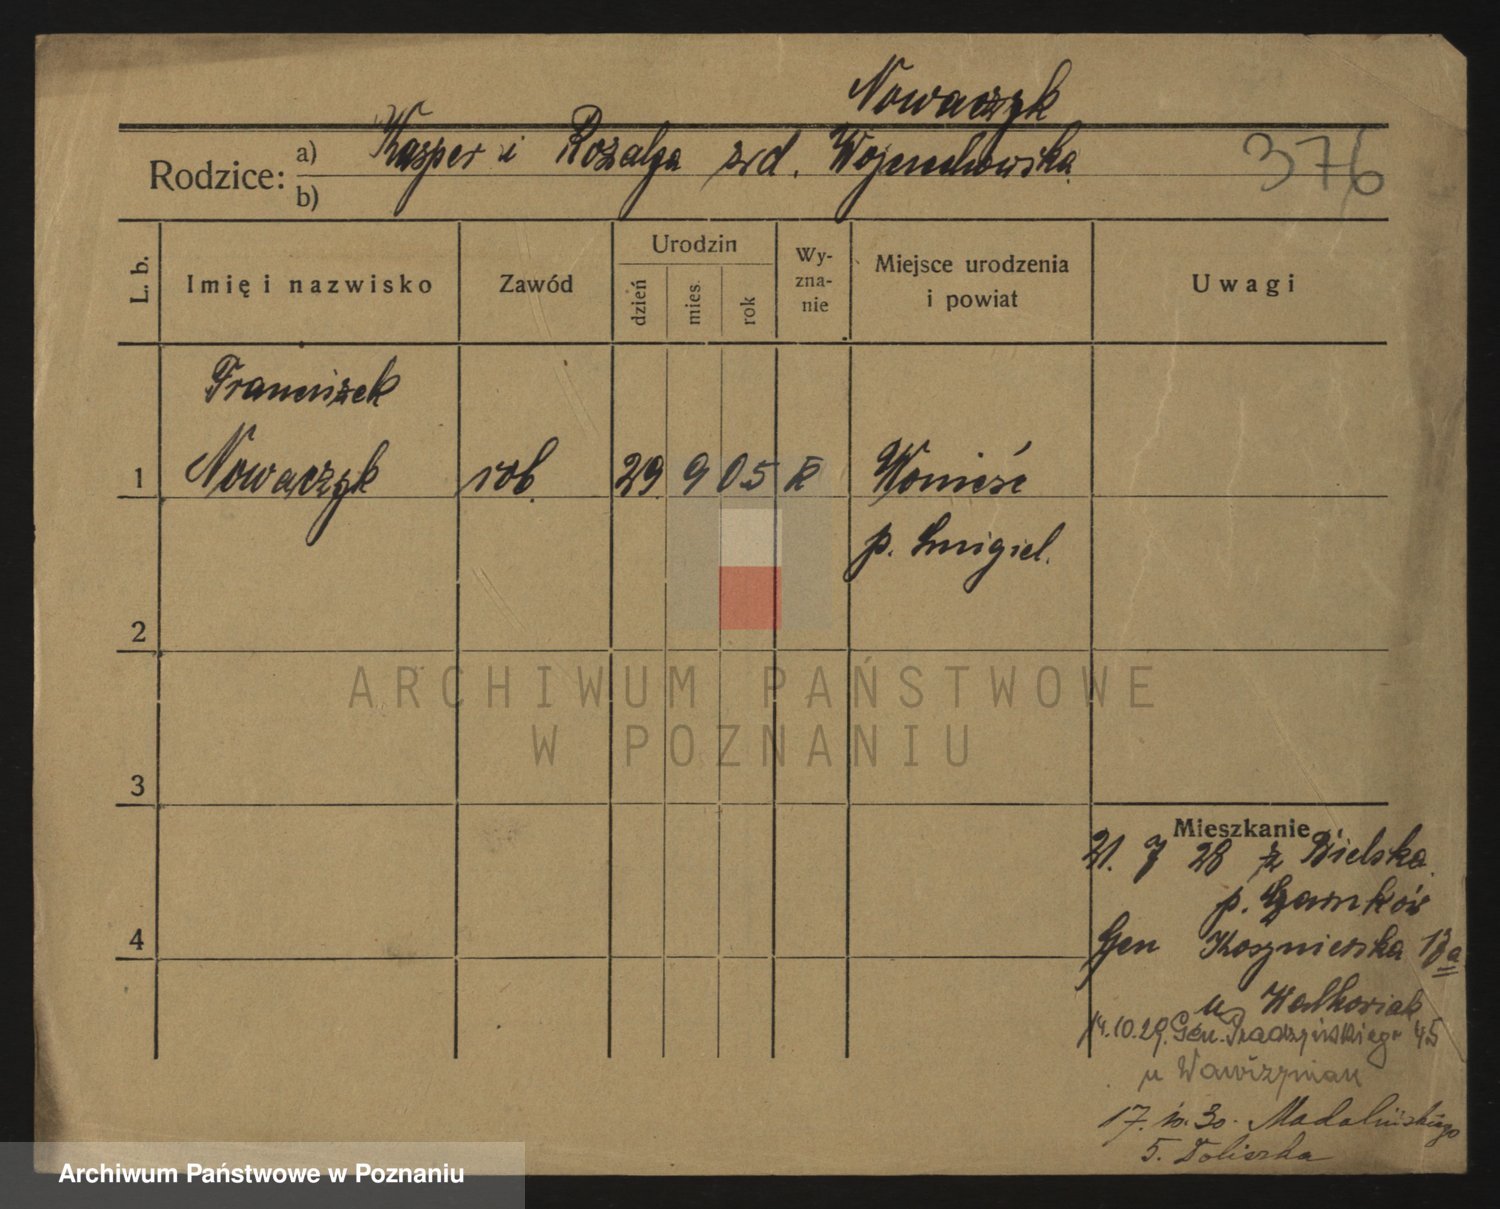 Nowaczyk
Rodzice: a) Kasper i Rozalja zrd. Wojciechowska
b)
376
L. b.
Imię i nazwisko
Zawód
Urodzin
dzień
mies.
rok
Wy-
zna-
nie
Miejsce urodzenia
i powiat
Uwagi
Franciszek
1 Nowaczyk rob. 29 9 05 K Wonieść
p. Śmigiel.
2
ARCHIWUM PAŃSTWOWE
W POZNANIU
3
Mieszkanie
21. 7 28 z Bielska
p. Czarnków
4
Gen Kosznierska 13a
u
14.10.29. Gen. Prądzyńskiego 45
u Wawrzyniak
17. 10. 30. Madalińskiego
5.
Archiwum Państwowe w Poznaniu